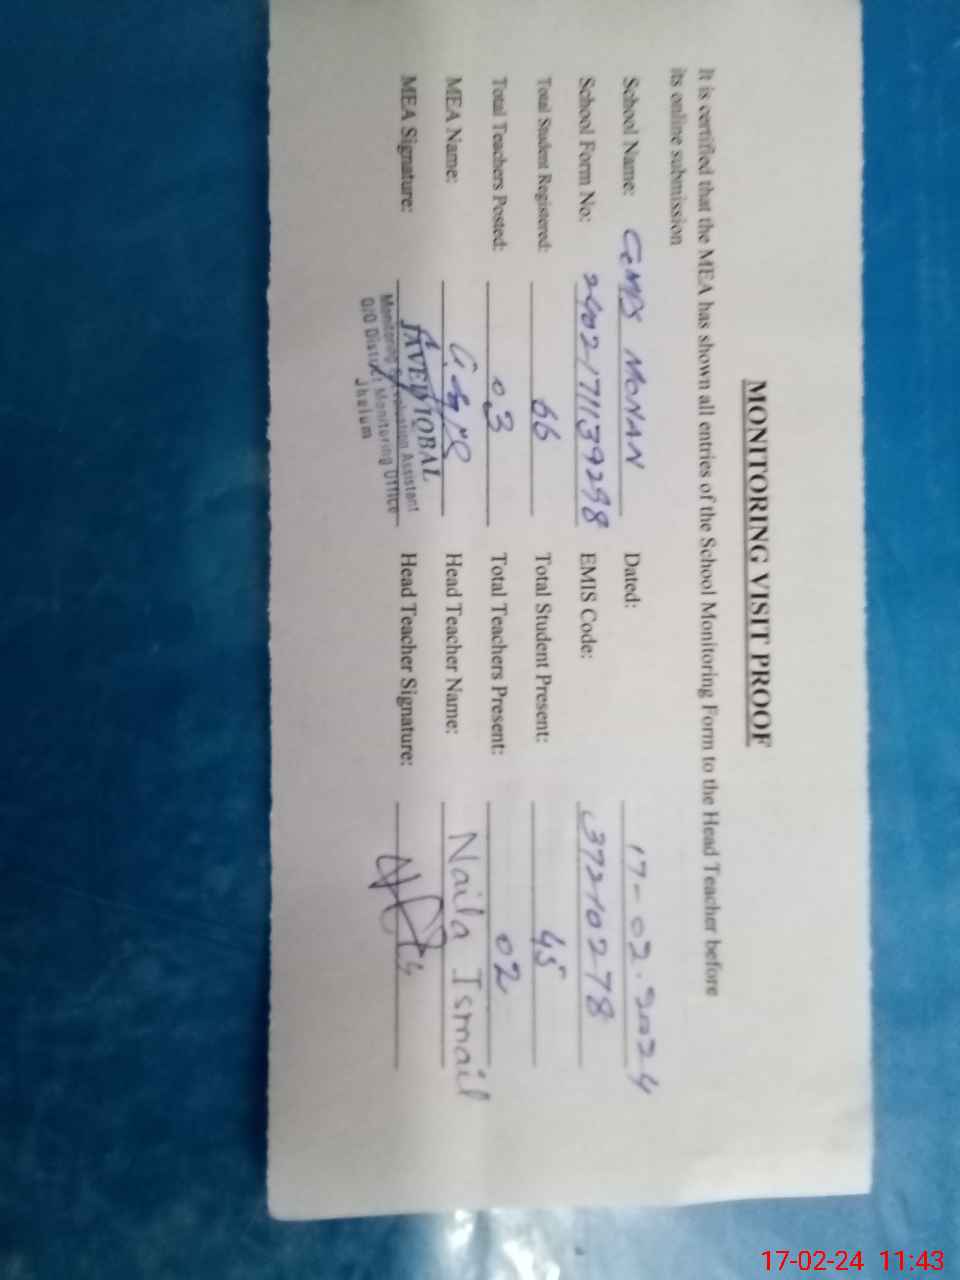 MONITORING VISIT PROOF
It is certified that the MEA has shown all entries of the School Monitoring Form to the Head Teacher before
its online submission
School Name: GMPS MONAN Dated: 17-02-2024
School Form No: 24021711139298 EMIS Code: 37210278
Total Student Registered: 66 Total Student Present: 45
Total Teachers Posted: 03 Total Teachers Present: 02
MEA Name: Head Teacher Name: Naila Ismail
MEA Signature: JAVED IQBAL Head Teacher Signature:
Monitoring & Evaluation Assistant
O/O District Monitoring Office
Jhelum
17-02-24 11:43